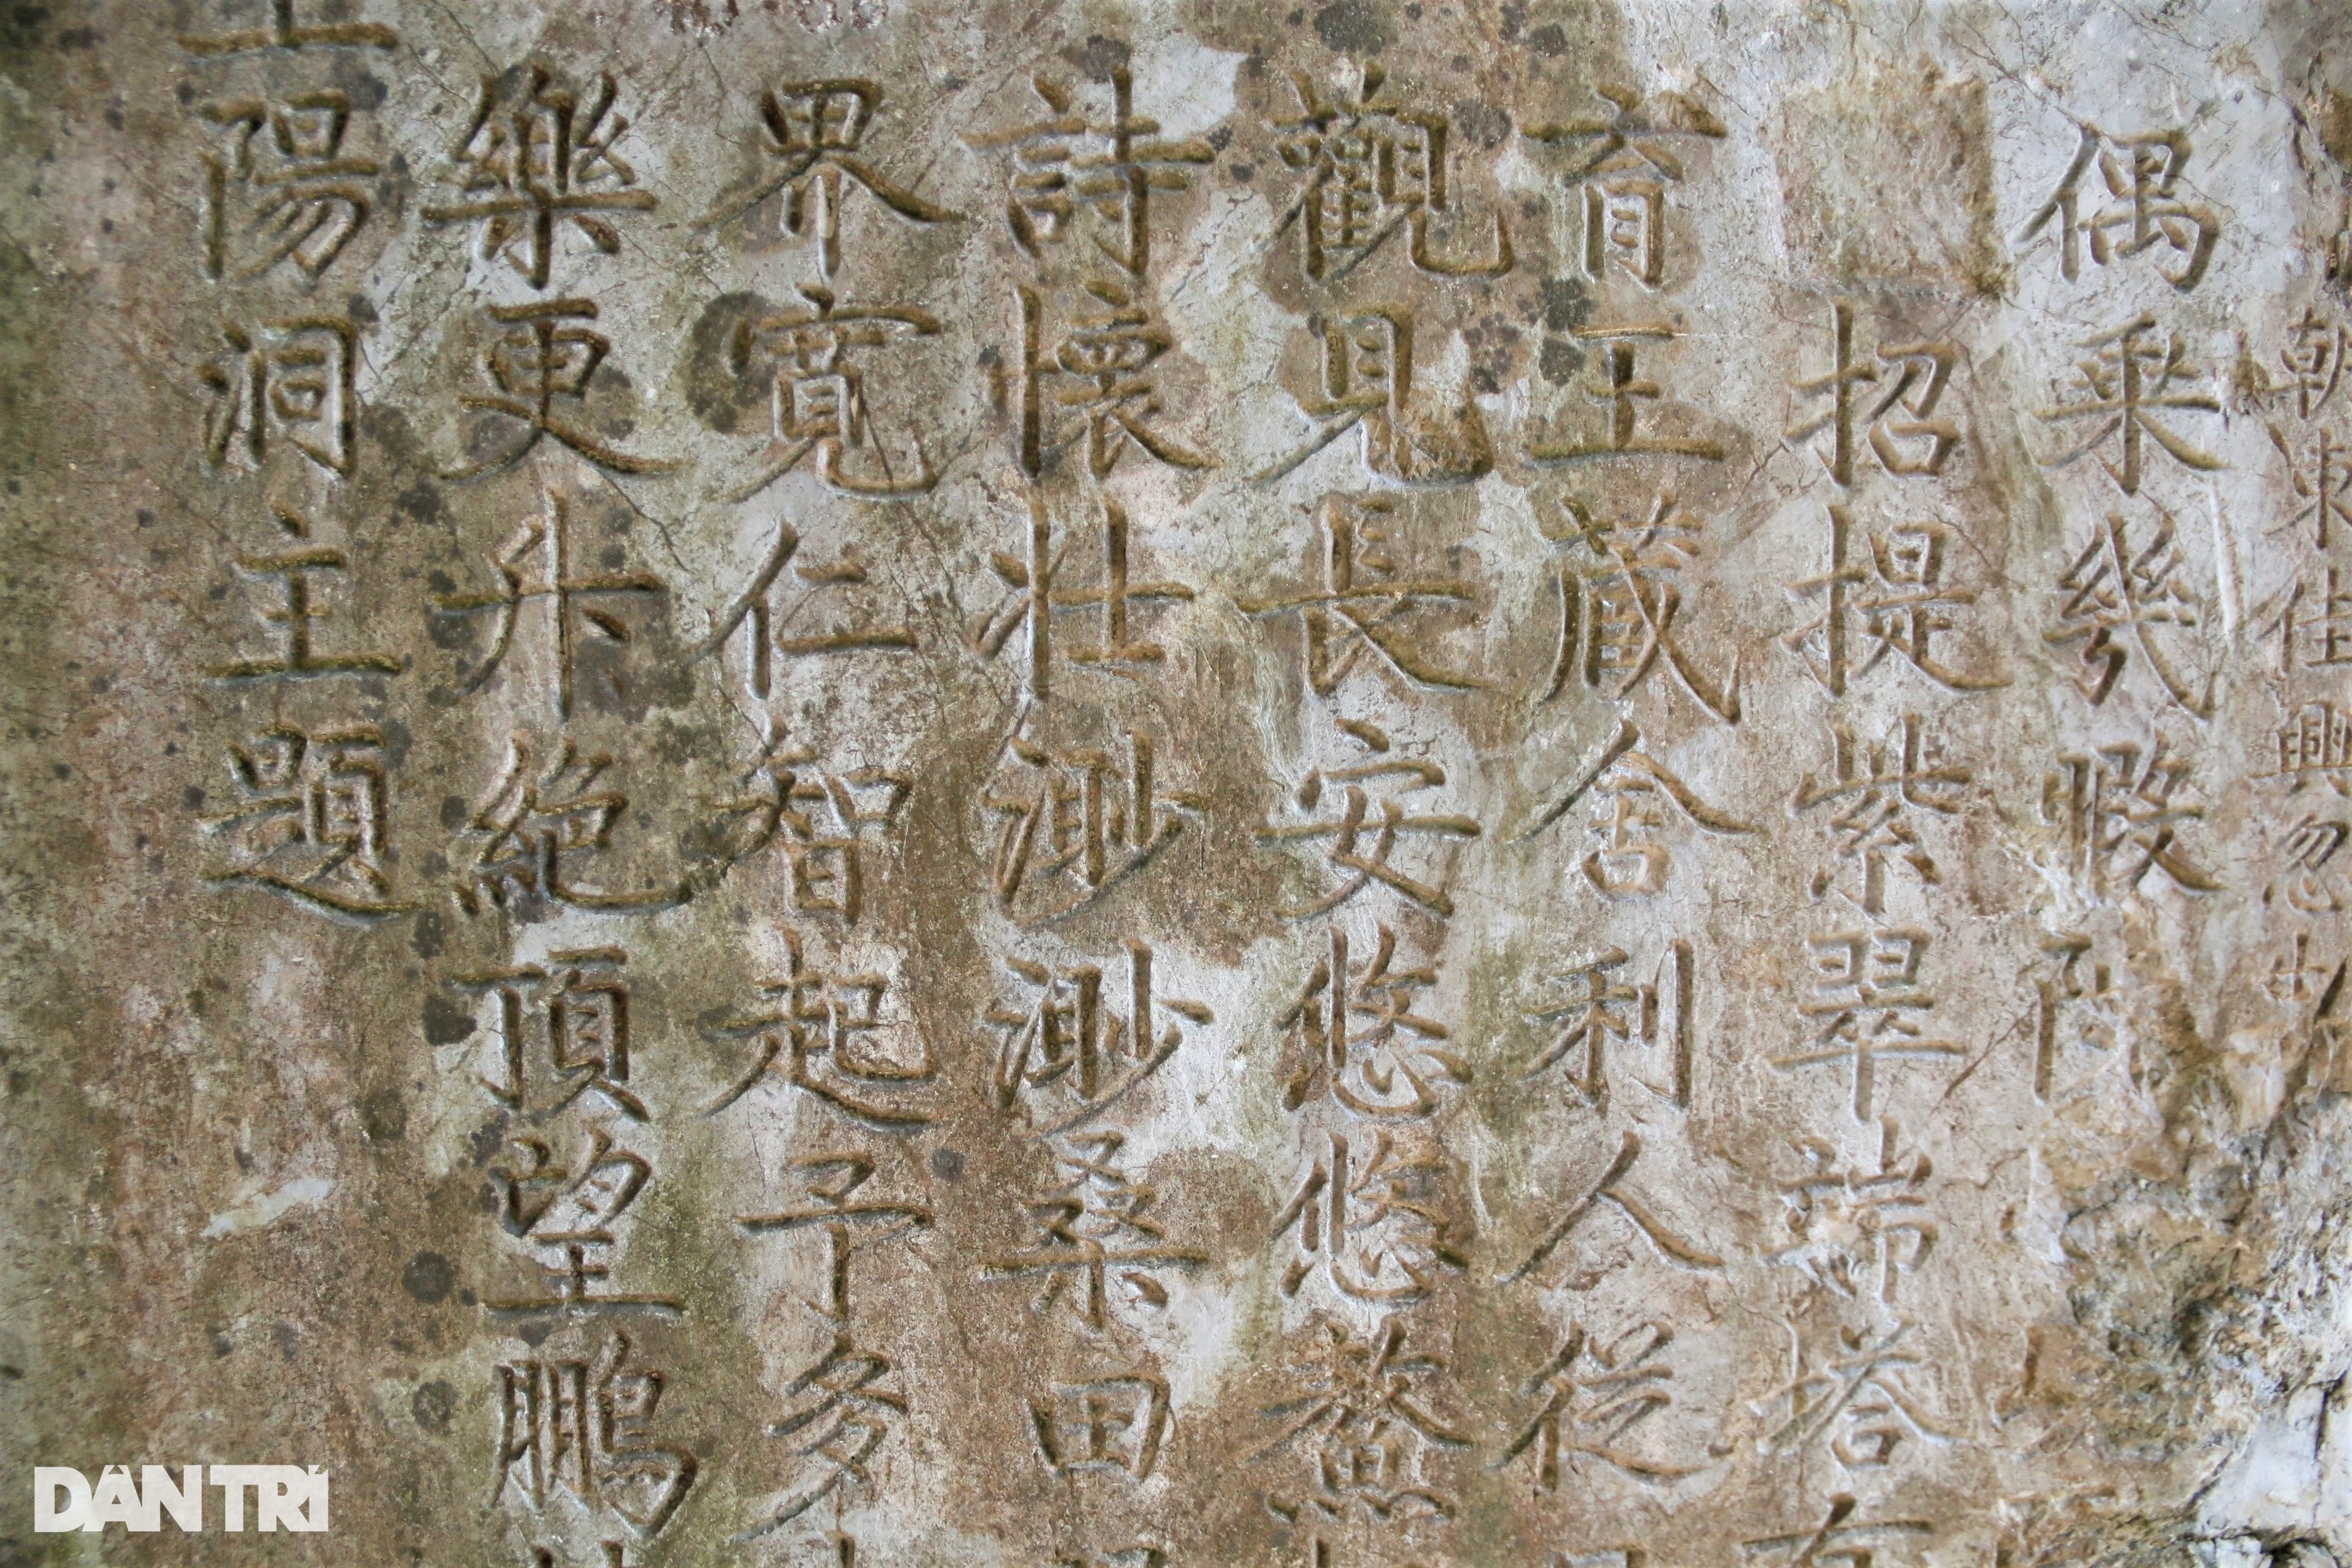 朝來佳興忽
偶乘幾暇
招提紫翠端塔
育王藏舍利人從
觀見長安悠悠鰲
詩懷壯渺渺桑田
界寬仁智起予多
樂更升絕頂望鵬
陽洞主題
DÂN TRÍ